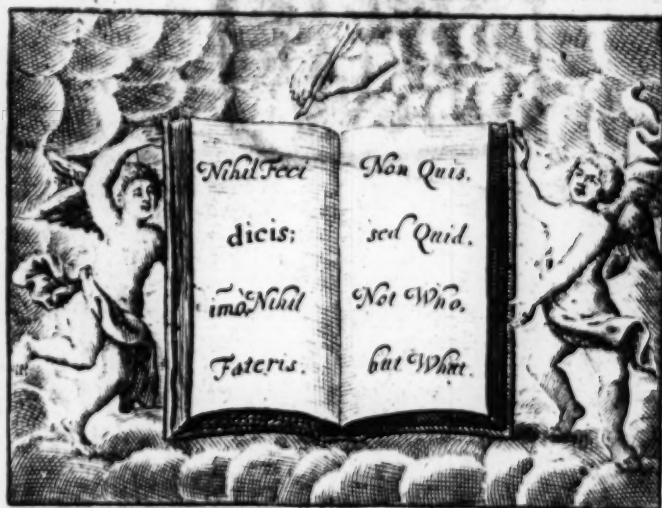 Nihil Feci
dicis;
imò, Nihil
Fateris.
Non Quis.
sed Quid.
Not Who,
but What.